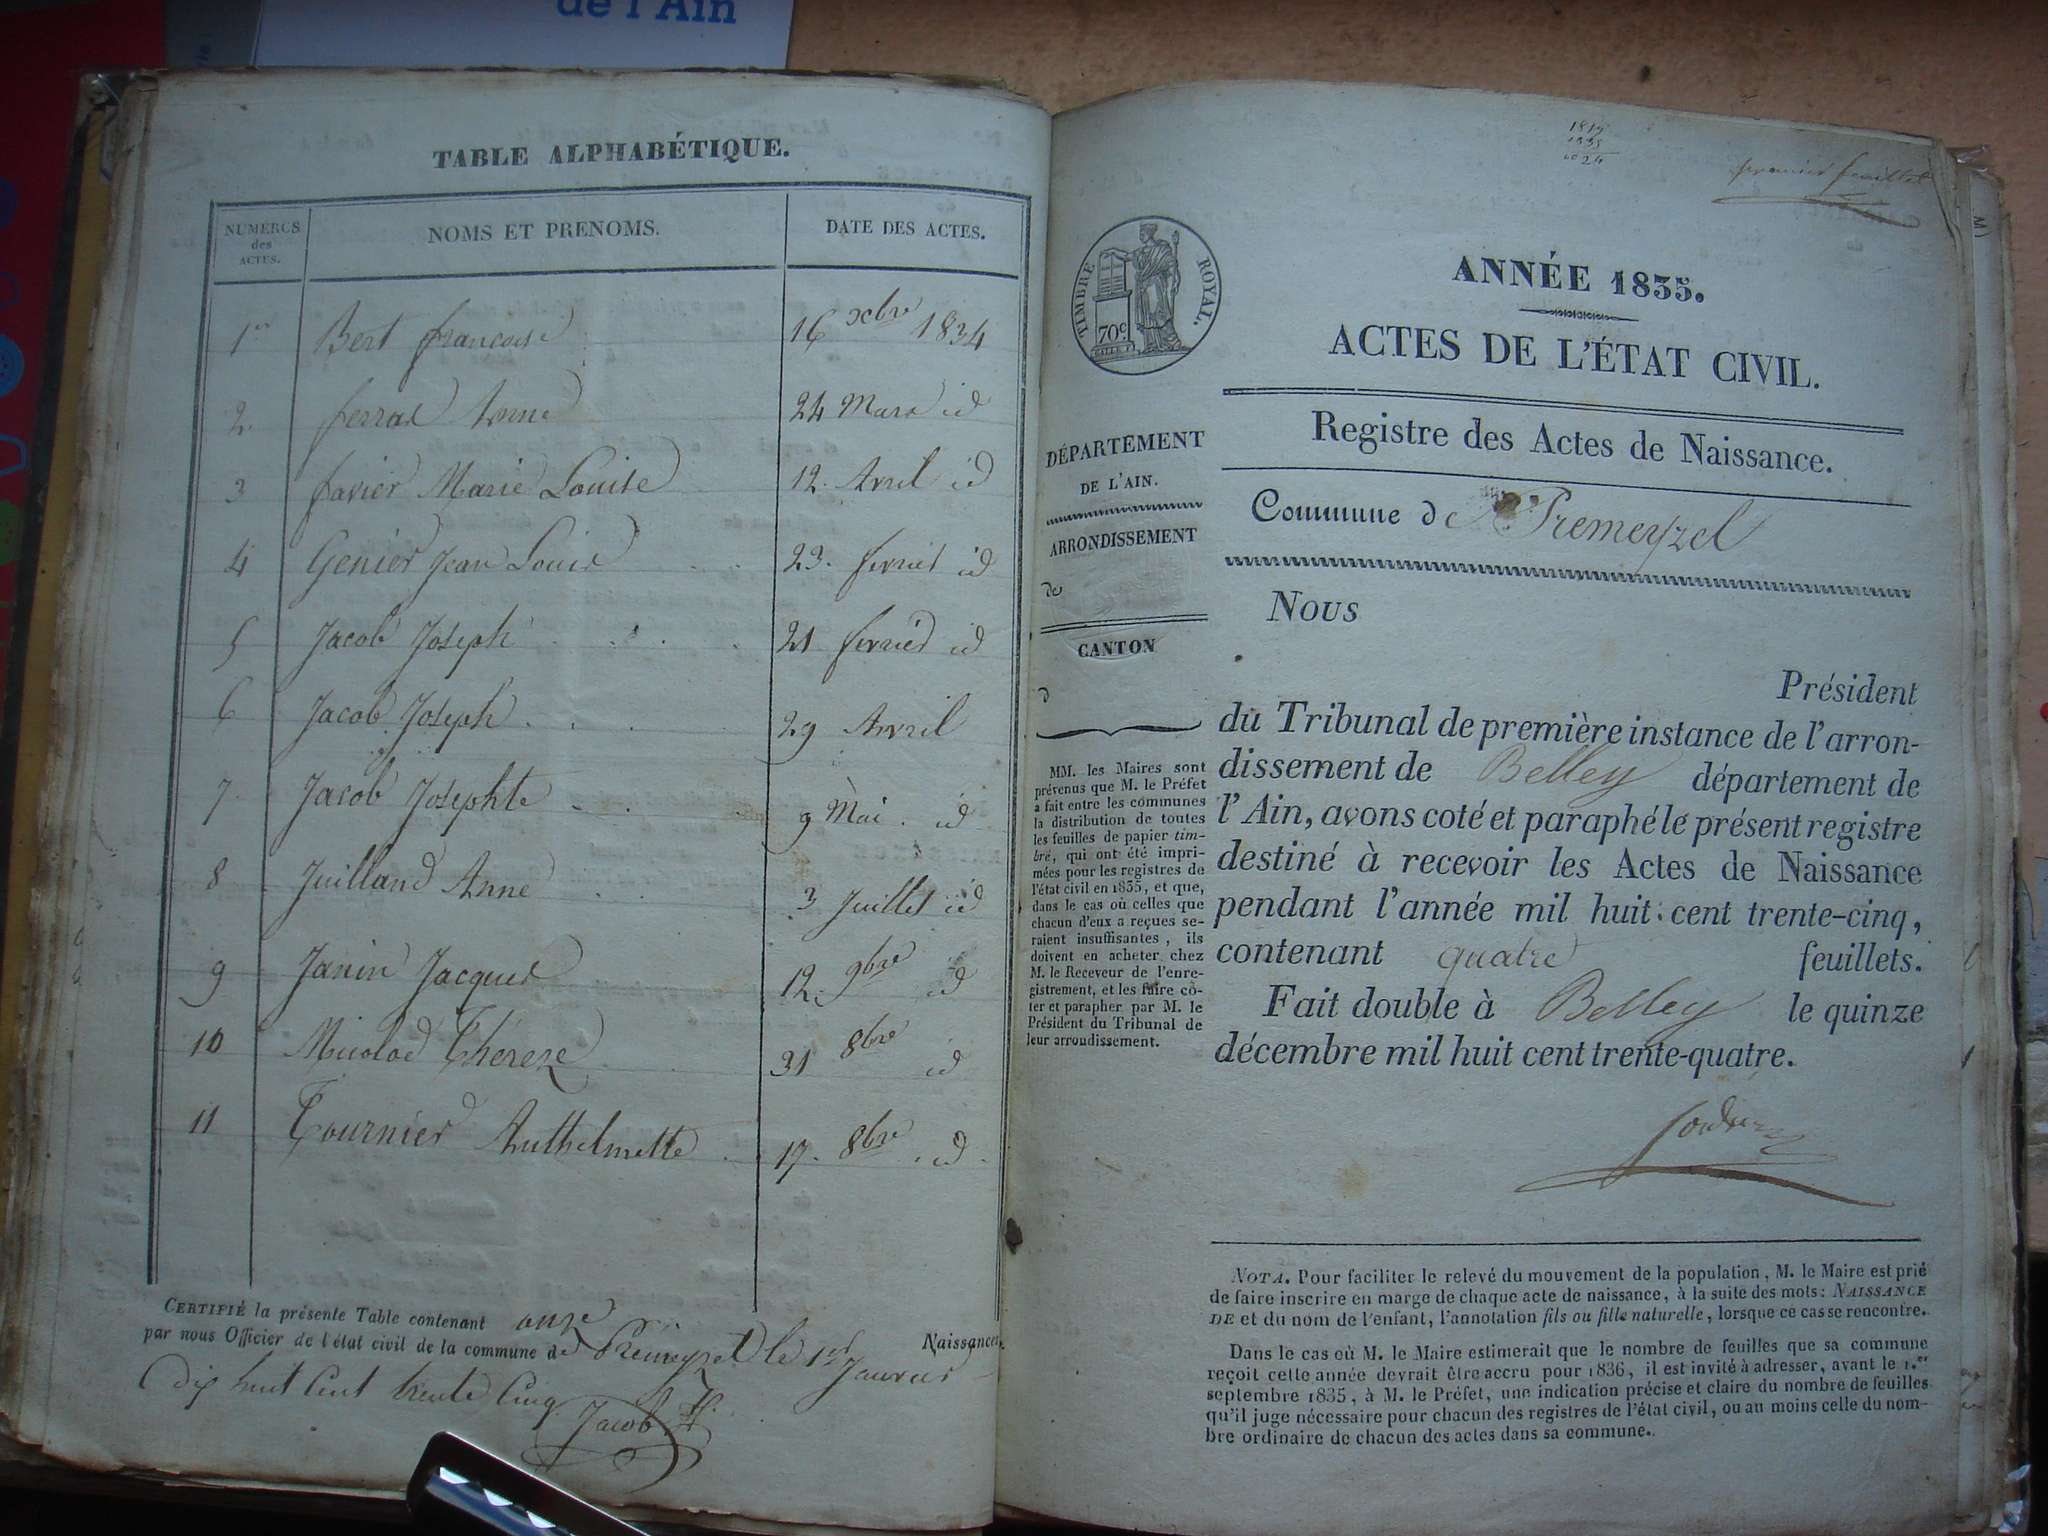 de l'Ain
TABLE ALPHABÉTIQUE.
NUMÉROS
des
ACTES.
NOMS ET PRENOMS.
DATE DES ACTES.
1er Bert françoise 16 xbre 1834
2. ferrar Anne 24 Mars id
3 favier Marie Louise 12. Avril id
4 Genier Jean Louis 23. fevrier id
5 Jacob Joseph 21 fevrier id
6 Jacob Joseph 29 Avril
7. Jacob Josephte 9 Mai. id
8 Juilland Anne 3 Juillet id
9 Janin Jacques 12. 9bre id
10 Thereze 31 8bre id
11 Tournier Anthelmette 17. 8bre. id.
CERTIFIÉ la présente Table contenant onze Naissances,
par nous Officier de l'état civil de la commune de Premeyzel le 1er Janvier
dix huit Cent trente Cinq
Jacob
1835
premier feuillet
TIMBRE ROYAL.
70c.
ANNÉE 1835.
ACTES DE L'ÉTAT CIVIL.
Registre des Actes de Naissance.
Commune de Premeyzel
DÉPARTEMENT
DE L'AIN.
ARRONDISSEMENT
de
CANTON
d
MM. les Maires sont
prévenus que M. le Préfet
a fait entre les communes
la distribution de toutes
les feuilles de papier tim-
bré, qui ont été impri-
mées pour les registres de
l'état civil en 1835, et que,
dans le cas où celles que
chacun d'eux a reçues se-
raient insuffisantes, ils
doivent en acheter chez
M. le Receveur de l'enre-
gistrement, et les faire cô-
ter et parapher par M. le
Président du Tribunal de
leur arrondissement.
NOUS
Président
du Tribunal de première instance de l'arron-
dissement de Belley département de
l'Ain, avons coté et paraphé le présent registre
destiné à recevoir les Actes de Naissance
pendant l'année mil huit cent trente-cinq,
contenant quatre feuillets.
Fait double à Belley le quinze
décembre mil huit cent trente-quatre.
NOTA. Pour faciliter le relevé du mouvement de la population, M. le Maire est prié
de faire inscrire en marge de chaque acte de naissance, à la suite des mots: NAISSANCE
DE et du nom de l'enfant, l'annotation fils ou fille naturelle, lorsque ce cas se rencontre.
Dans le cas où M. le Maire estimerait que le nombre de feuilles que sa commune
reçoit cette année devrait être accru pour 1836, il est invité à adresser, avant le 1.er
septembre 1835, à M. le Préfet, une indication précise et claire du nombre de feuilles
qu'il juge nécessaire pour chacun des registres de l'état civil, ou au moins celle du nom-
bre ordinaire de chacun des actes dans sa commune.